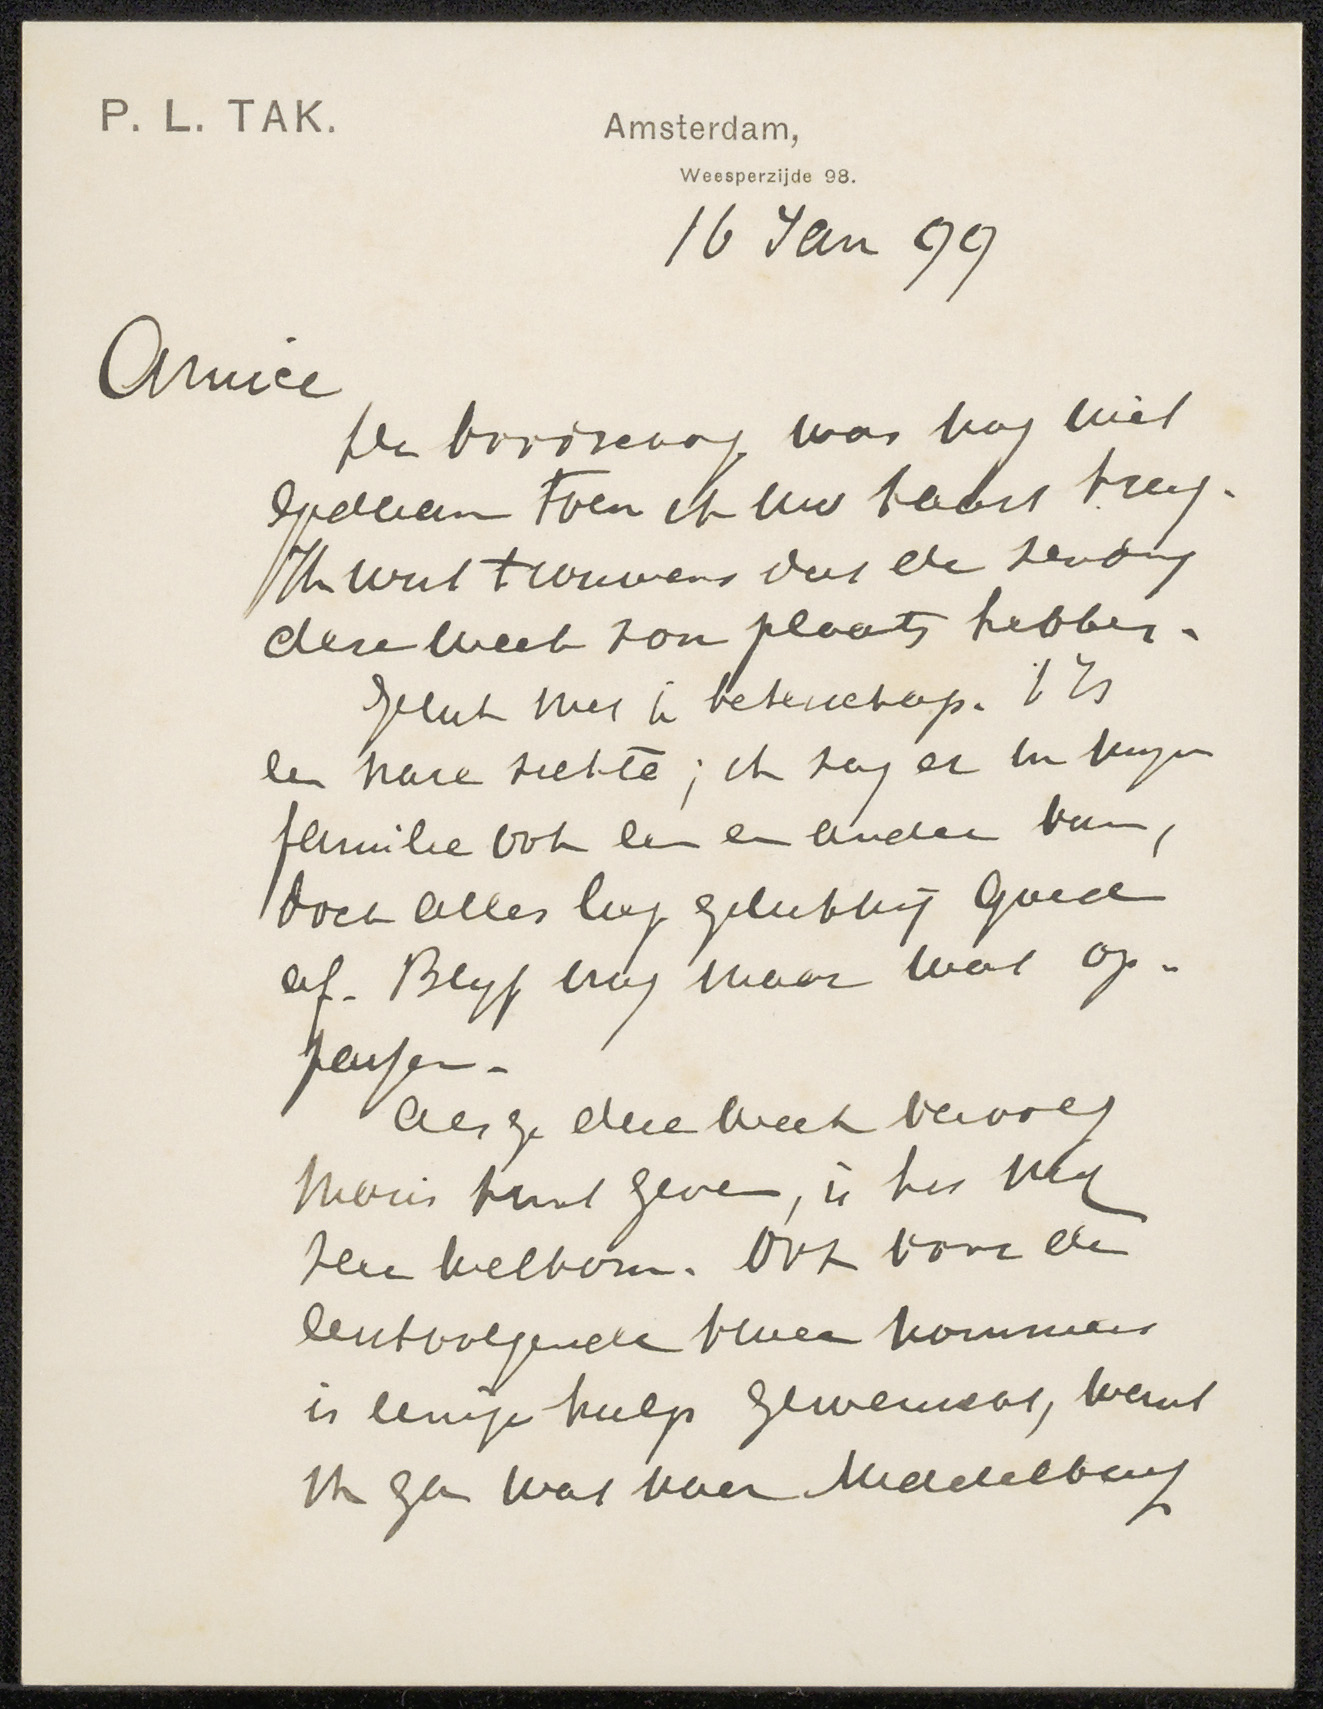 P. L. TAK.
Amsterdam,
Weesperzijde 98.
16 Jan 99
Amice
De was nog niet
gedaan toen ik uw kaart kreeg.
Ik wist trouwens dat de zending
deze week zou plaats hebben.
Geluk met je beterschap. 't Is
een nare ziekte; ik zag er in mijn
familie ook een en ander van,
doch alles liep gelukkig goed
af. Blijf nog maar wat op-
passen.
Als ge deze week vervolg
Maris kunt geven, is het mij
zeer welkom. Ook voor de
eerstvolgende twee nommers
is eenige hulp gewenscht, want
ik ga wat naar Middelburg